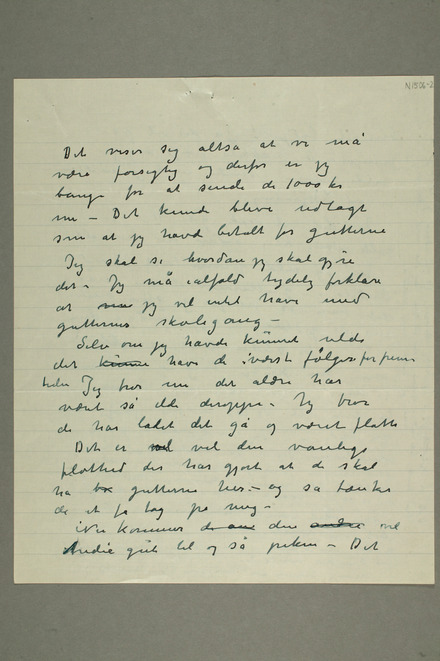 N1506-2
Det viser sig altsa at vi må
være forsigtig og derfor er jeg
bange for at sende de 1000 kr
nu – Det kunde bleve udlagt
som at jeg havd betalt for gutterne
Jeg skal se hvordan jeg skal gjøre
det – Jeg må ialfald tydelig forklare
at jeg vil intet have med
gutternes skolegang –
Selv om jeg havde kunnet vilde
det have de værste følger for frem
tiden Jeg tror nu det aldre har
været så ille deroppe – Jeg tror
de har ladet det gå og været flatte
Det er vel den vanlige
flathed der har gjort at de skal
ha gutterne her – og sa tænker
de at ta tag fra meg –
kommer den vil
til og så – Det